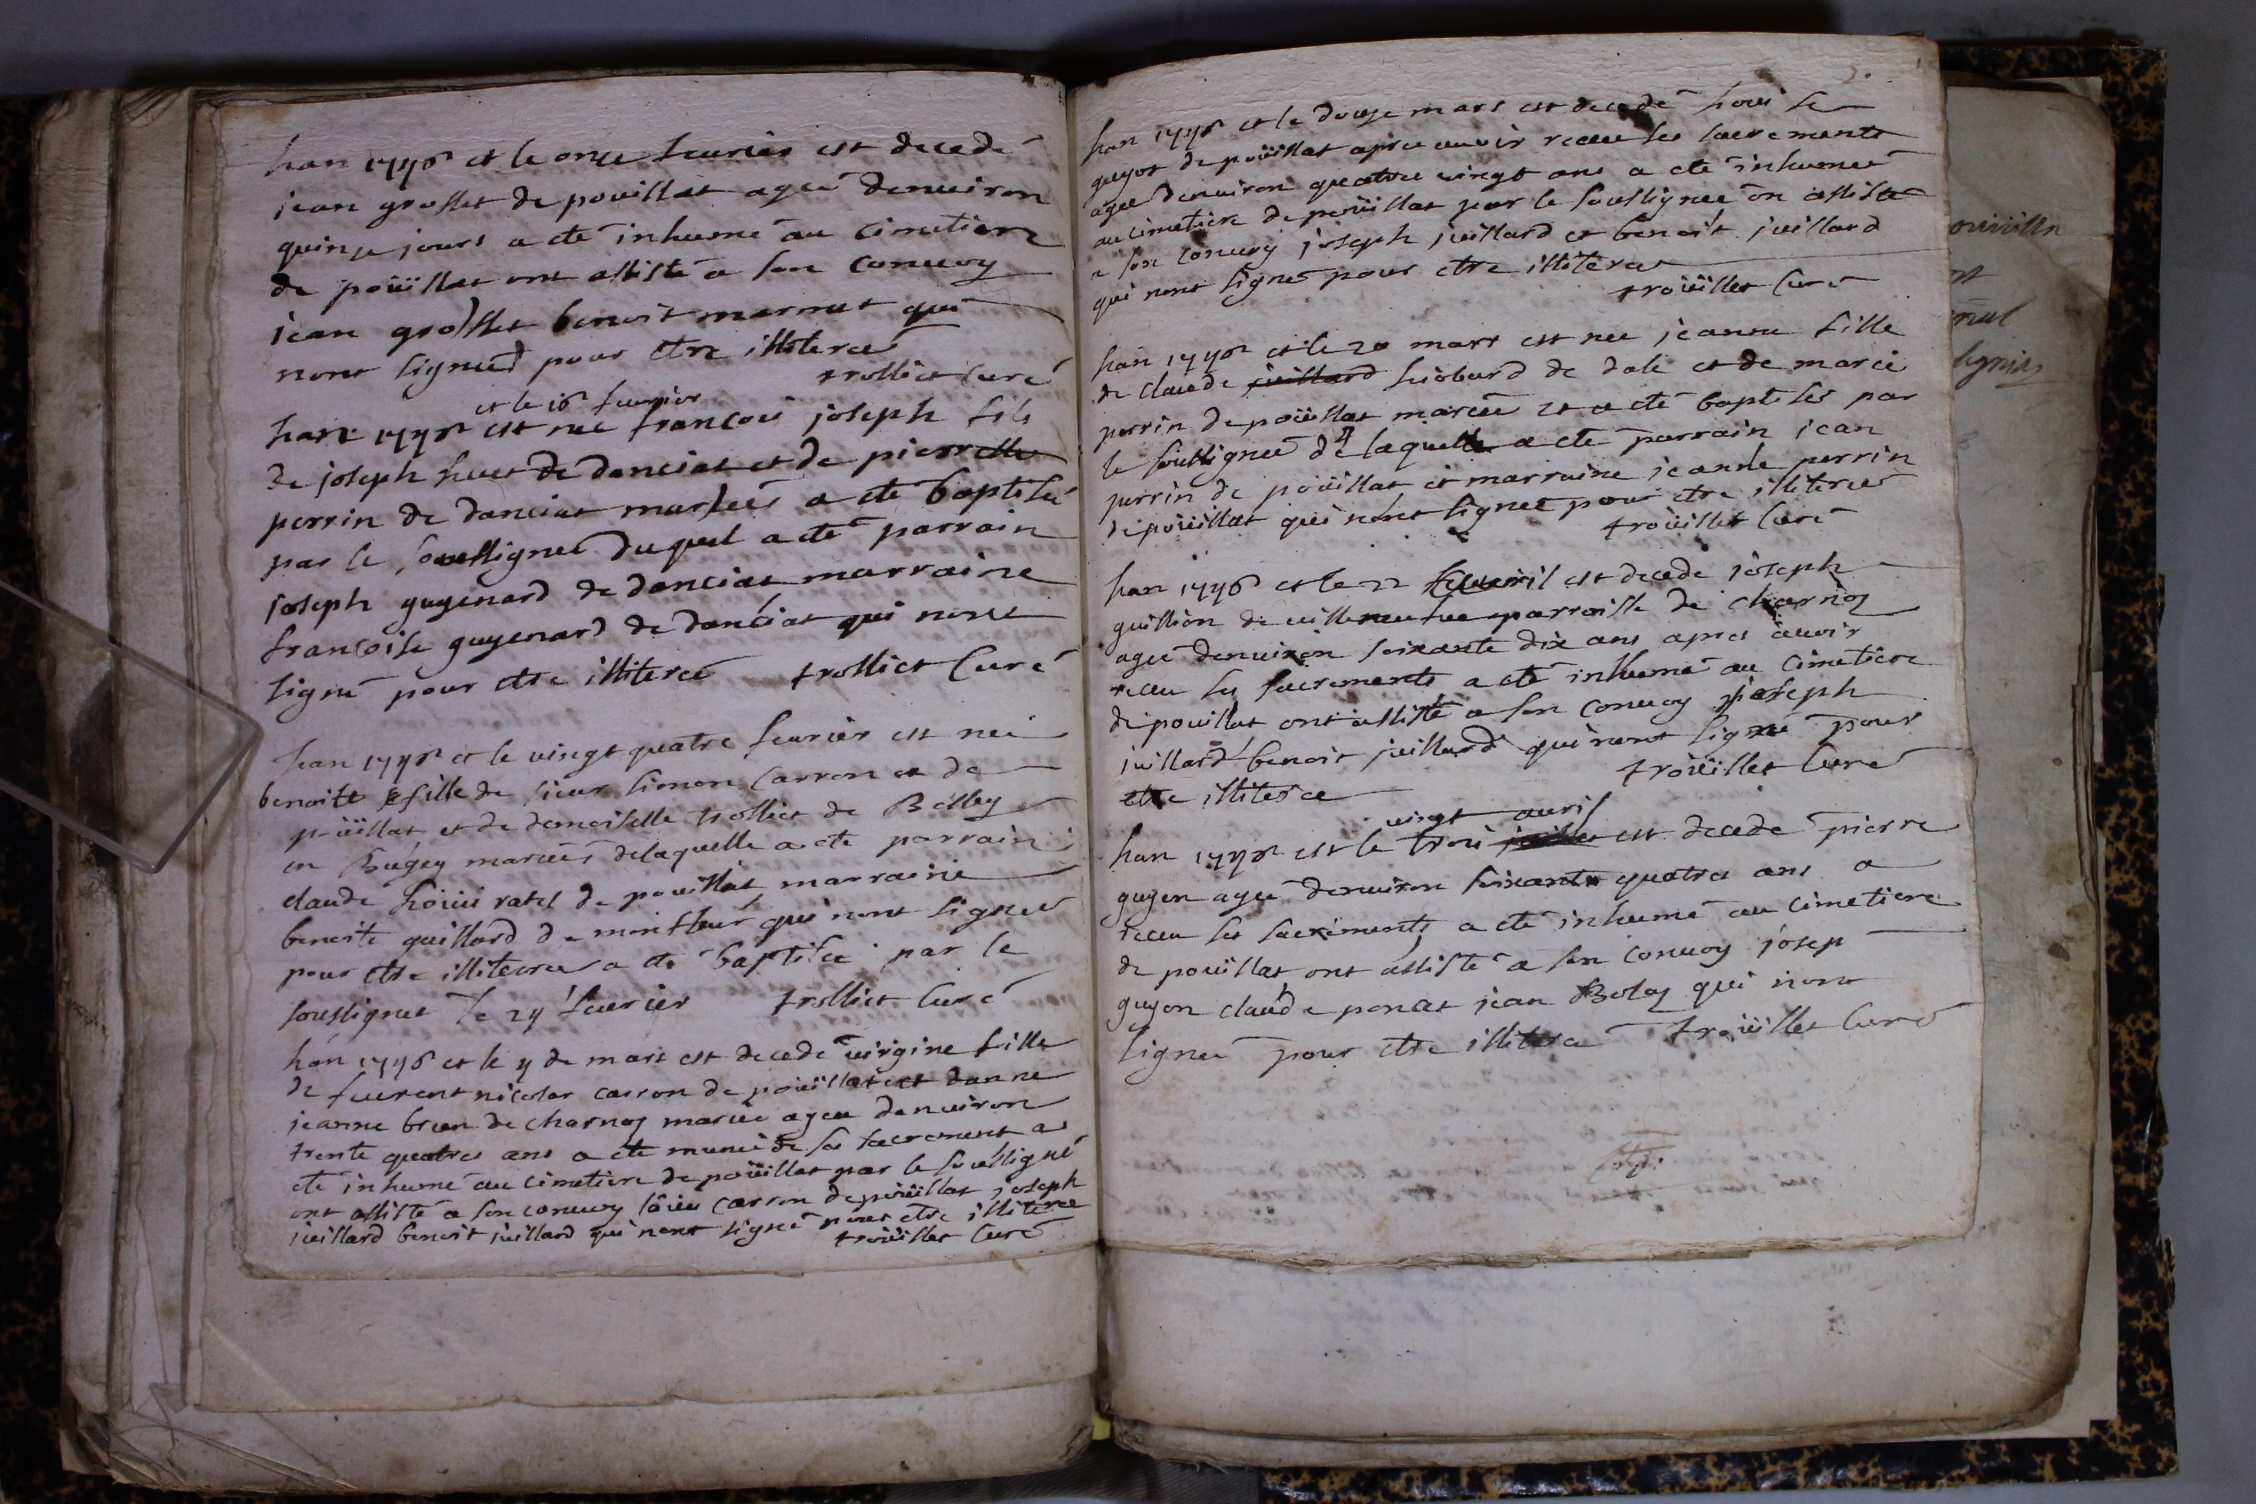 lan 1776 et le onze feurier est decedé
jean grosset de pouillat ageé denuiron
quinze jours a eté inhumé au cimetiere
de poüillat ont assisté a son conuoy
jean grosset benoit marmet qui
nont signed pour etre illiteree
trolliet curé
et le 16 feurier
lan 1776 est neé françois joseph fils
de joseph huet de danciat et de pierrette
perrin de danciat marieés a eté baptiseé
par le soussigneé duquel a eté parrain
joseph guyenard de danciat marraine
françoise guyenard de danciat qui nont
signé pour etre illitereé trolliet curé
lan 1776 et le vingt quatre feurier est neé
benoite fille de sieur simon carron et de
poüillat et de demoiselle trolliet de Belley
en Bugey marieés delaquelle a eté parrain
claude de pouillat marraine
benoite guillard de qui nont signeé
pour etre illiteree a eté baptiseé par le
soussigneé le 24 feurier trolliet curé
lan 1776 et le 7 de mars est decedé virgine fille
de feu rent nicolas carron de poüillat et danne
jeanne brun de charnoy marieé ageé denuiron
trente quatres ans a eté munie de ses sacrement a
eté inhumé au cimetiere de poüillat par le soussigné
ont assisté a son conuoy carron de poüillat joseph
juillard benoit juillard qui nont signé pour etre illiteree
troüillet curé
2.
lan 1776 et le douze mars est decedé loui le
guyot de poüillat apres auoir receu les sacrements
ageé denuiron quatre vingt ans a eté inhumeé
au cimetiere de poüillat par le soussigneé on assisté
a son conuoy joseph juillard et benoit juillard
qui nont signé pour etre illiteree
troüillet curé
lan 1776 et le 20 mars est neé jeanne fille
de claude juillard de dole et de marie
perrin de poüillat marieé et a eté baptiseé par
le soussigneé de laquelle a eté parrain jean
perrin de poüillat et marraine jeanne perrin
de poüillat qui nont signeé pour etre illiteree
troüillet curé
lan 1776 et le 22 est decede joseph
guillion de villeneufue parroisse de charnoy
ageé denuiron soixante dix ans apres auoir
receu les sacrements a eté inhumé au cimetiere
de pouillat ont assisté a son conuoy joseph
juillard benoit juillard qui nont signé pour
etre illiteree troüillet curé
vingt auril
lan 1776 est le troi est decede pierre
guyon ageé denuiron soixante quatres ans a
receu les sacrements a eté inhumé au cimetiere
de pouillat ont assisté a son conuoy josep
guyon claude poncet jean Bolay qui nont
signeé pour etre illiteree troüillet curé